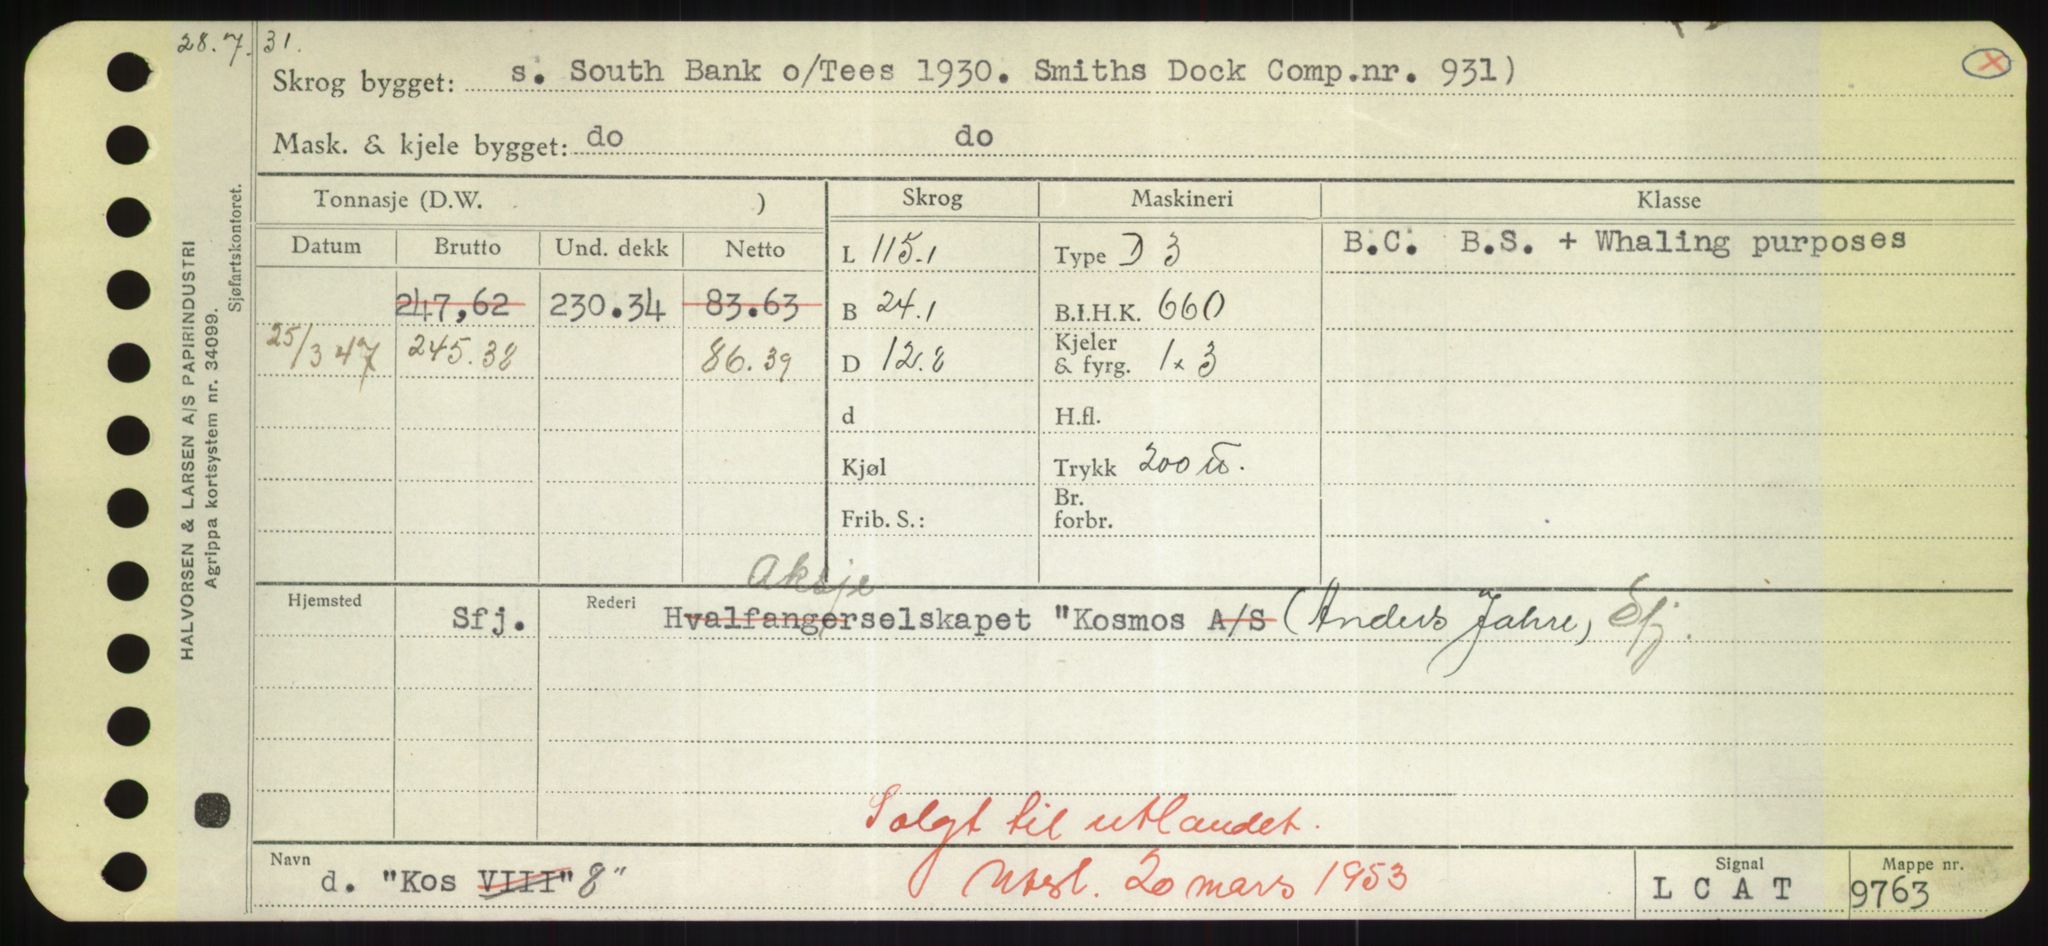 28.7.31.
Skrog bygget: s. South Bank o/Tees 1930. Smiths Dock Comp.nr. 931)
Mask. & kjele bygget: do do
Tonnasje (D.W. ) Skrog Maskineri Klasse
Datum Brutto Und. dekk Netto L 115.1 Type D 3 B.C. B.S. + Whaling purposes
247,62 230.34 83.63 B 24.1 B.I.H.K. 660
25/3 47 245.38 86.39 D 12.8 Kjeler & fyrg. 1 x 3
d H.fl.
Kjøl Trykk 200 ℔.
Frib. S.: Br. forbr.
Aksje
Hjemsted Sfj. Rederi Hvalfangerselskapet "Kosmos A/S (Anders Jahre, Sfj.
Solgt til utlandet.
Navn d. "Kos VIII" 8" Utsl. 20 mars 1953 Signal L C A T Mappe nr. 9763
HALVORSEN & LARSEN A/S PAPIRINDUSTRI
Agrippa kortsystem nr. 34099.
Sjøfartskontoret.